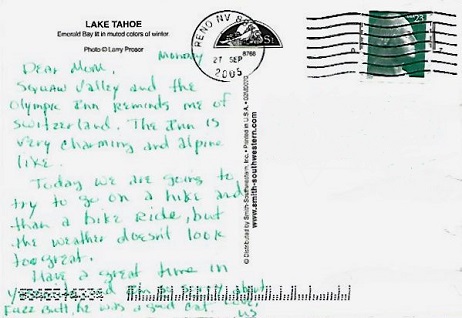 LAKE TAHOE
Emerald Bay lit in muted colors of winter.
Photo © Larry Prosor
Monday
Dear Mom,
Squaw Valley and the
Olympic Inn Reminds me of
Switzerland. The Inn is
very charming and alpine
like.
Today we are going to
try to go on a hike and
than a bike Ride, but
the weather doesn't look
too great.
Have a great time in
and am sorry about
Fuzz Butt, he was a good cat. Love,
us
RENO NV
27 SEP
2005
Distributed by Smith-Southwestern, Inc. • Printed in U.S.A.
www.smith-southwestern.com